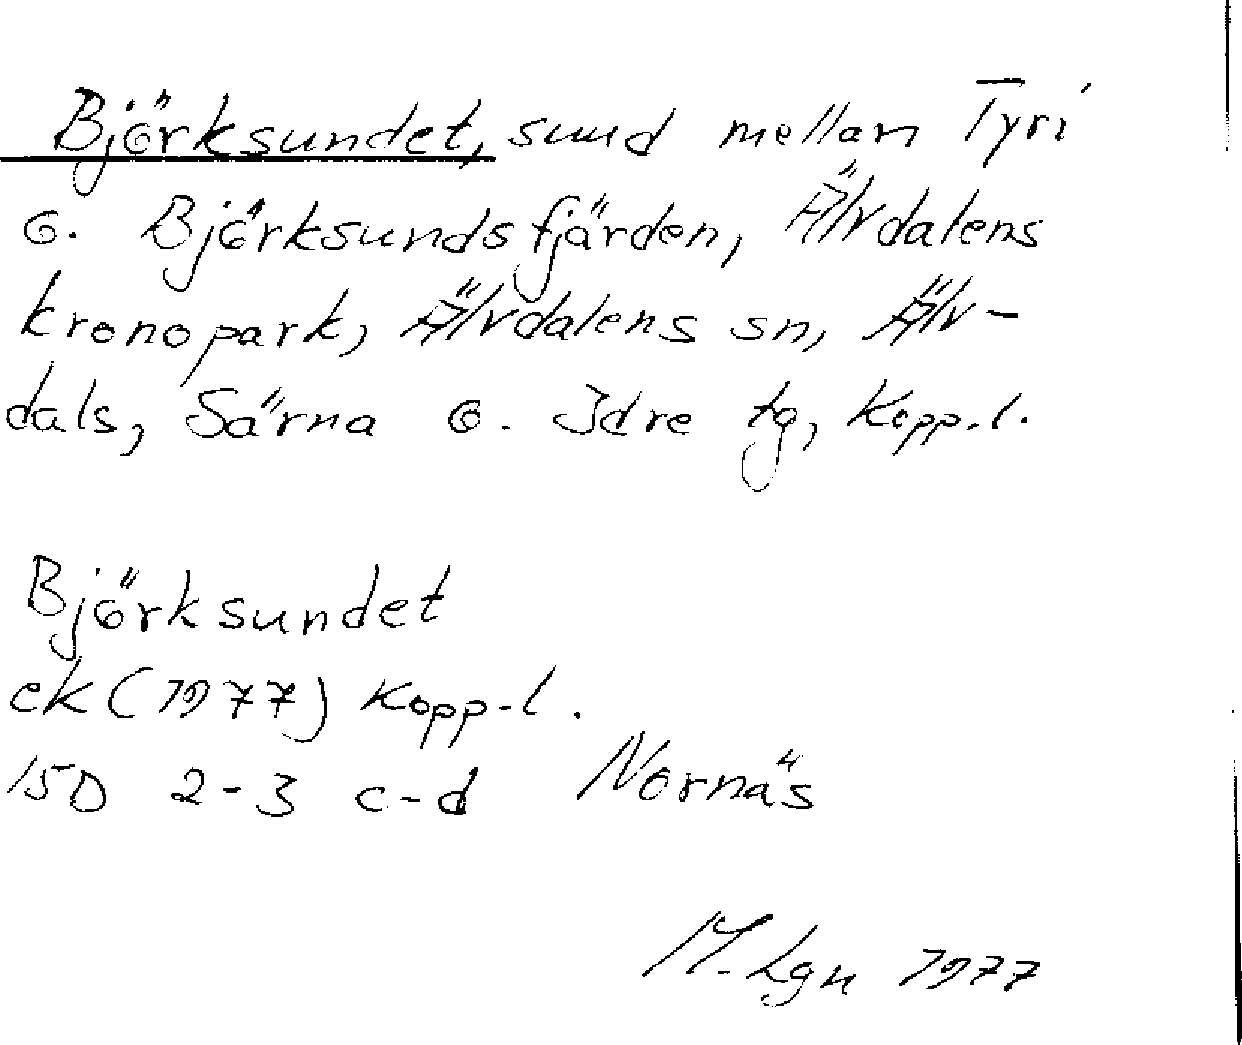 Björksundet, sund mellan Tyri
o. Björksundsfjärden, Älvdalens
kronopark, Älvdalens sn, Älv-
dals, Särna o. Idre tg, Kopp.l.
Björksundet
ek (1977) Kopp-l.
15D 2-3 c-d Nornäs
M. Lgn 1977